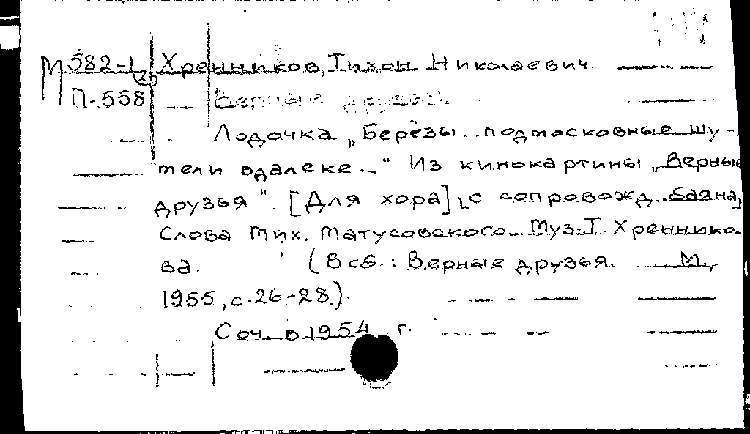 М 582-1 Хренников, Тихон Николаевич.
П-558 Верные друзья.
Лодочка „Берёзы подмосковные шу-
тели вдалеке..." Из кинокартины „Верные
друзья". [Для хора] с сопровожд. баяна,
Слова Мих. Матусовского. Муз. Т. Хреннико-
ва. (В сб.: Верные друзья. М.,
1955, с. 26-28).
Соч. в 1954 г.